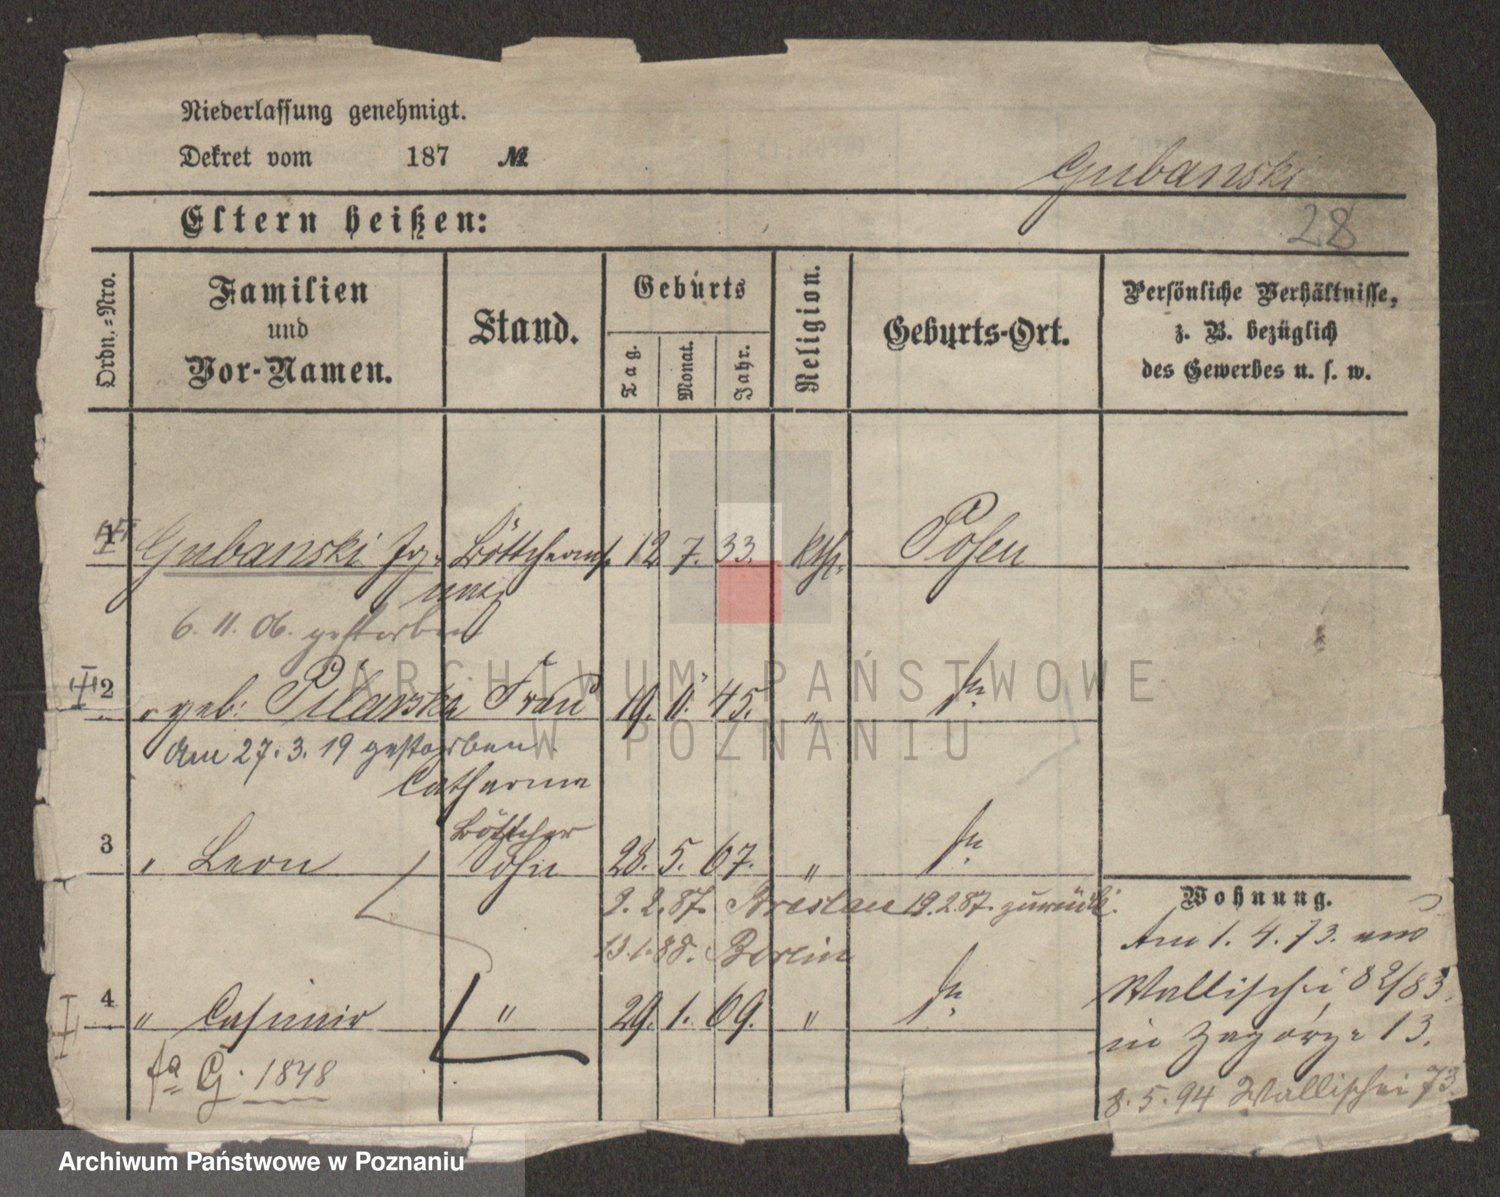 Niederlassung genehmigt.
Dekret vom 187 №
Gubanski
28
Eltern heißen:
Ordn.=Nro.
Familien und Vor-Namen.
Stand.
Geburts
Tag.
Monat.
Jahr.
Religion.
Geburts-Ort.
Persönliche Verhältnisse, z. B. bezüglich des Gewerbes u. s. w.
1 Gubanski Ig- Böttcherms. 12. 7. 33. kth. Posen
naz
6. 11. 06. gestorben
2 " geb: Pilarska Frau 19. 11. 45. "
Am 27. 3. 19 gestorben
Catharina
Böttcher
3 " Leon Sohn 28. 5. 67. "
2. 2. 87. Breslau 19.2.87. zurück.
13.1.88. Berlin
4 " Casimir " 29. 1. 69. "
G. 1848
Wohnung.
Am 1. 4. 73. aus
Wallischei 82/83.
in Zagórze 13.
8. 5. 94 Wallischei 73.
ARCHIWUM PAŃSTWOWE
W POZNANIU
Archiwum Państwowe w Poznaniu